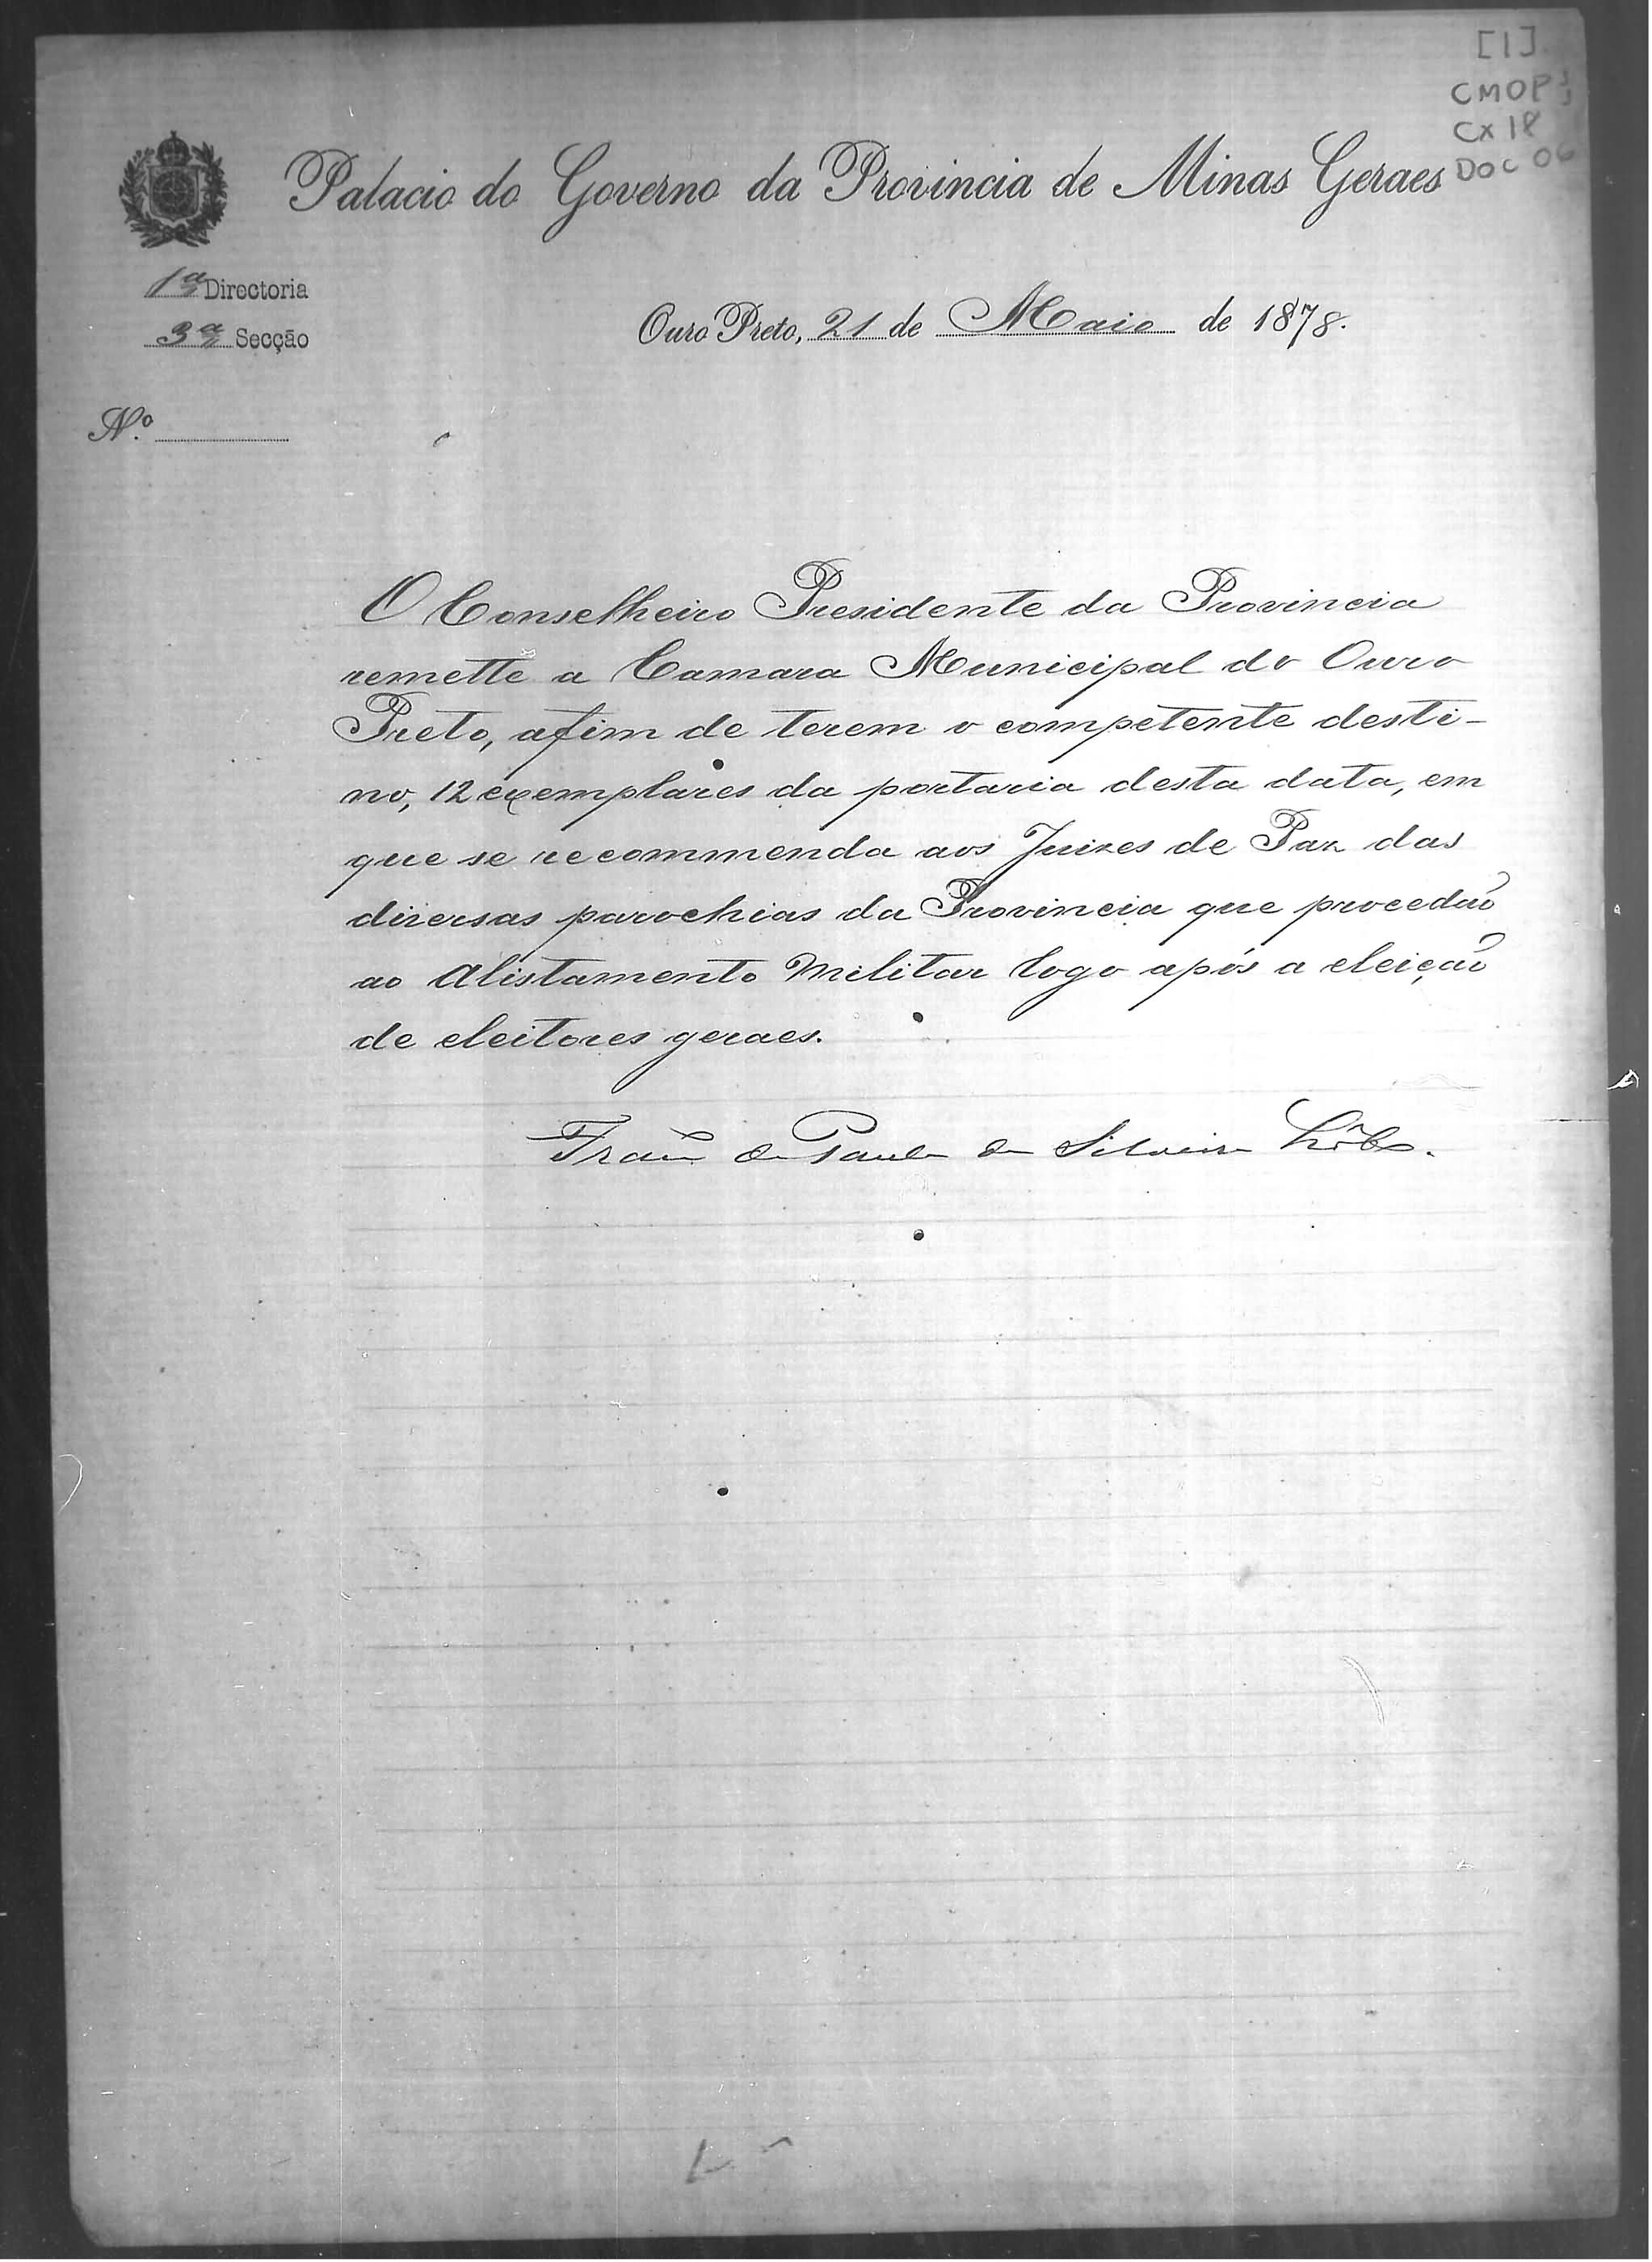 [1]
CMOP
CX 18
DOC 06
Palacio do Governo da Provincia de Minas Geraes
1ª Directoria
3ª Secção
Ouro Preto, 21 de Maio de 1878.
N.º
O Conselheiro Presidente da Provincia
remette a Camara Municipal do Ouro
Preto, afim de terem o competente desti-
no, 12 exemplares da portaria desta data, em
que se recommenda aos Juizes de Paz das
diversas parochias da Provincia que procedão
ao Alistamento Militar logo após a eleição
de eleitores geraes.
Franco de Paula da Silveira Lôbo.